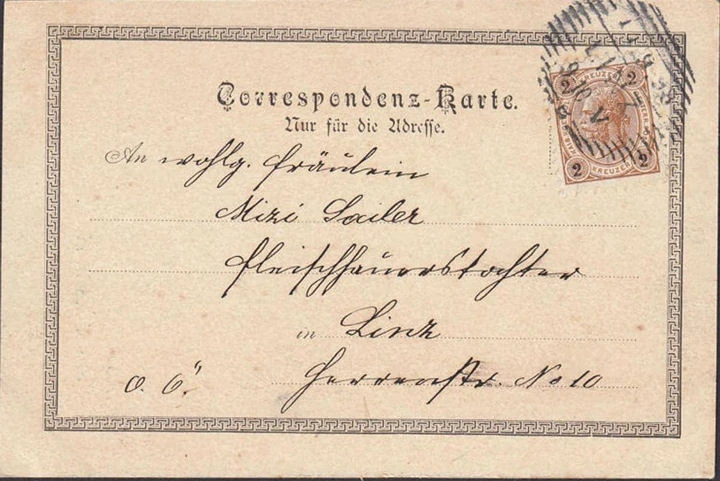 Correspondenz-Karte.
Nur für die Adresse.
An wohlg. Fräulein
Mizi Sailer
Fleischhauerstochter
in Linz
Herrenstr. No 10
O. Ö.
2 KREUZER 2
2 KREUZER 2
LINZ